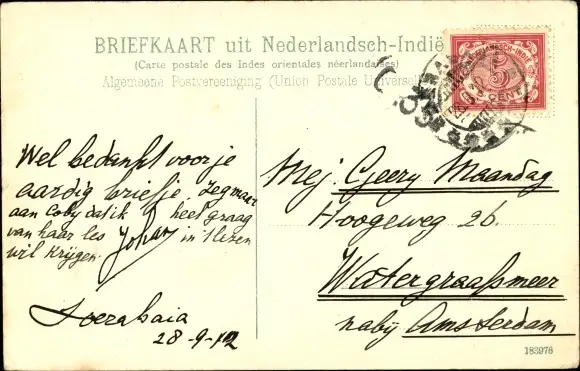 BRIEFKAART uit Nederlandsch-Indië
(Carte postale des Indes orientales néerlandaises)
Algemeene Postvereeniging (Union Postale Universelle)
NEDERLANDSCH-INDIË
5
CENT
Wel bedankt voor je
aardig briefje. Zeg maar
aan Coby dat ik heel graag
van haar les in 't lezen
wil krijgen. Johan
Soerabaia
28-9-12
Mej. Geery Maandag
Hoogeweg 26.
Watergraafsmeer
nabij Amsterdam
183976